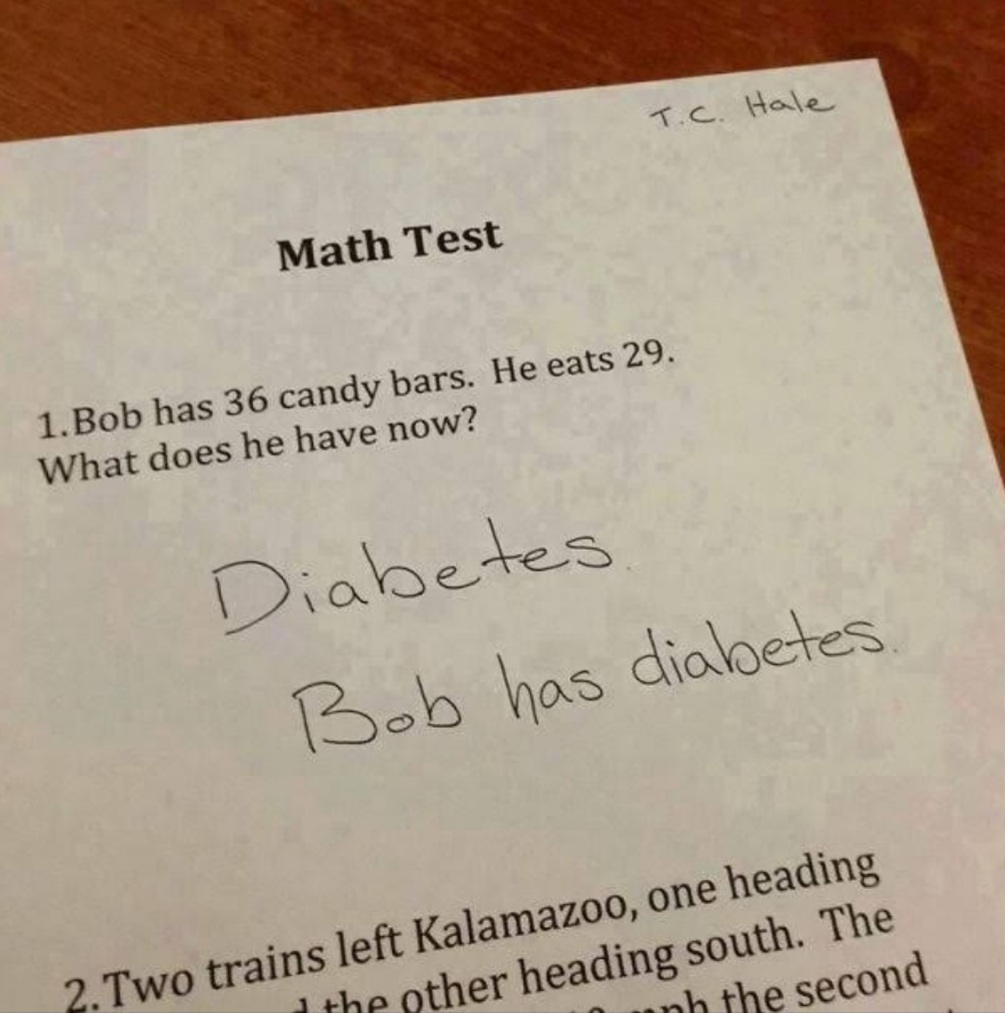 T.C. Hale
Math Test
1.Bob has 36 candy bars. He eats 29.
What does he have now?
Diabetes.
Bob has diabetes.
2.Two trains left Kalamazoo, one heading
the other heading south. The
the second